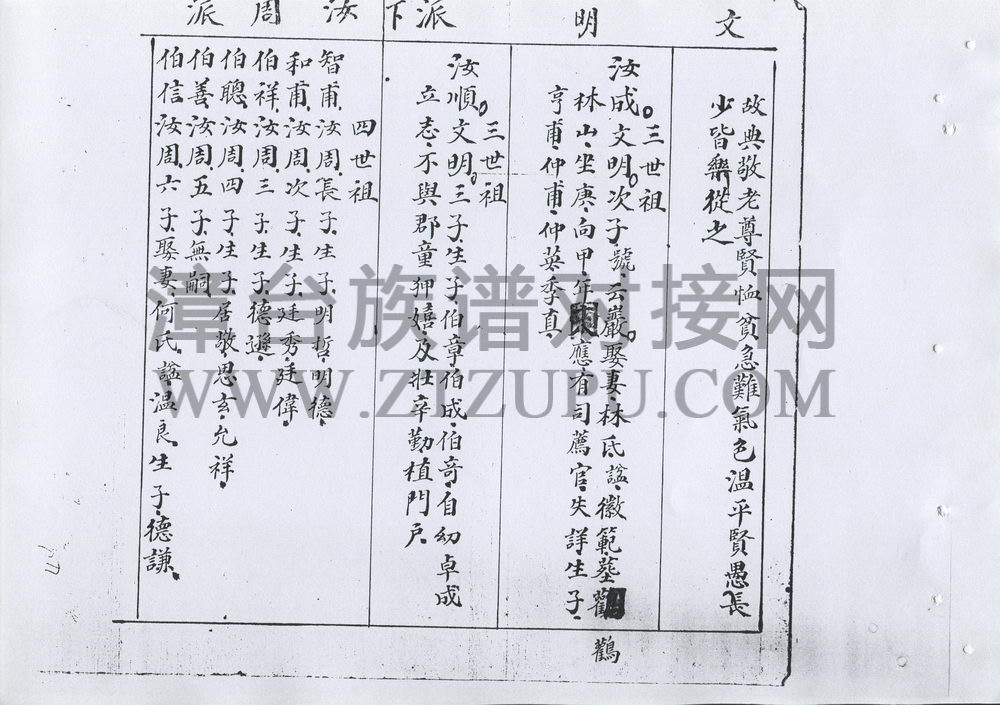 文明派下汝周派
故典敬老尊賢恤貧急難氣色温平賢愚長
少皆樂從之
三世祖
汝成文明次子號云巖娶妻林氏諡徽範墓
鸛
林山坐庚向甲年應有司薦官失詳生子
亨甫仲甫仲英季真
三世祖
汝順文明三子生子伯章伯成伯奇自幼卓成
立志不與郡童狎嬉及壯辛勤植門戶
四世祖
智甫汝周長子生子明哲明德
和甫汝周次子生子廷秀廷偉
伯祥汝周三子生子德遜
伯聰汝周四子生子居敬思玄允祥
伯善汝周五子無嗣
伯信汝周六子娶妻何氏諡温良生子德謙
漳台族谱对接网
WWW.ZIZUPU.COM